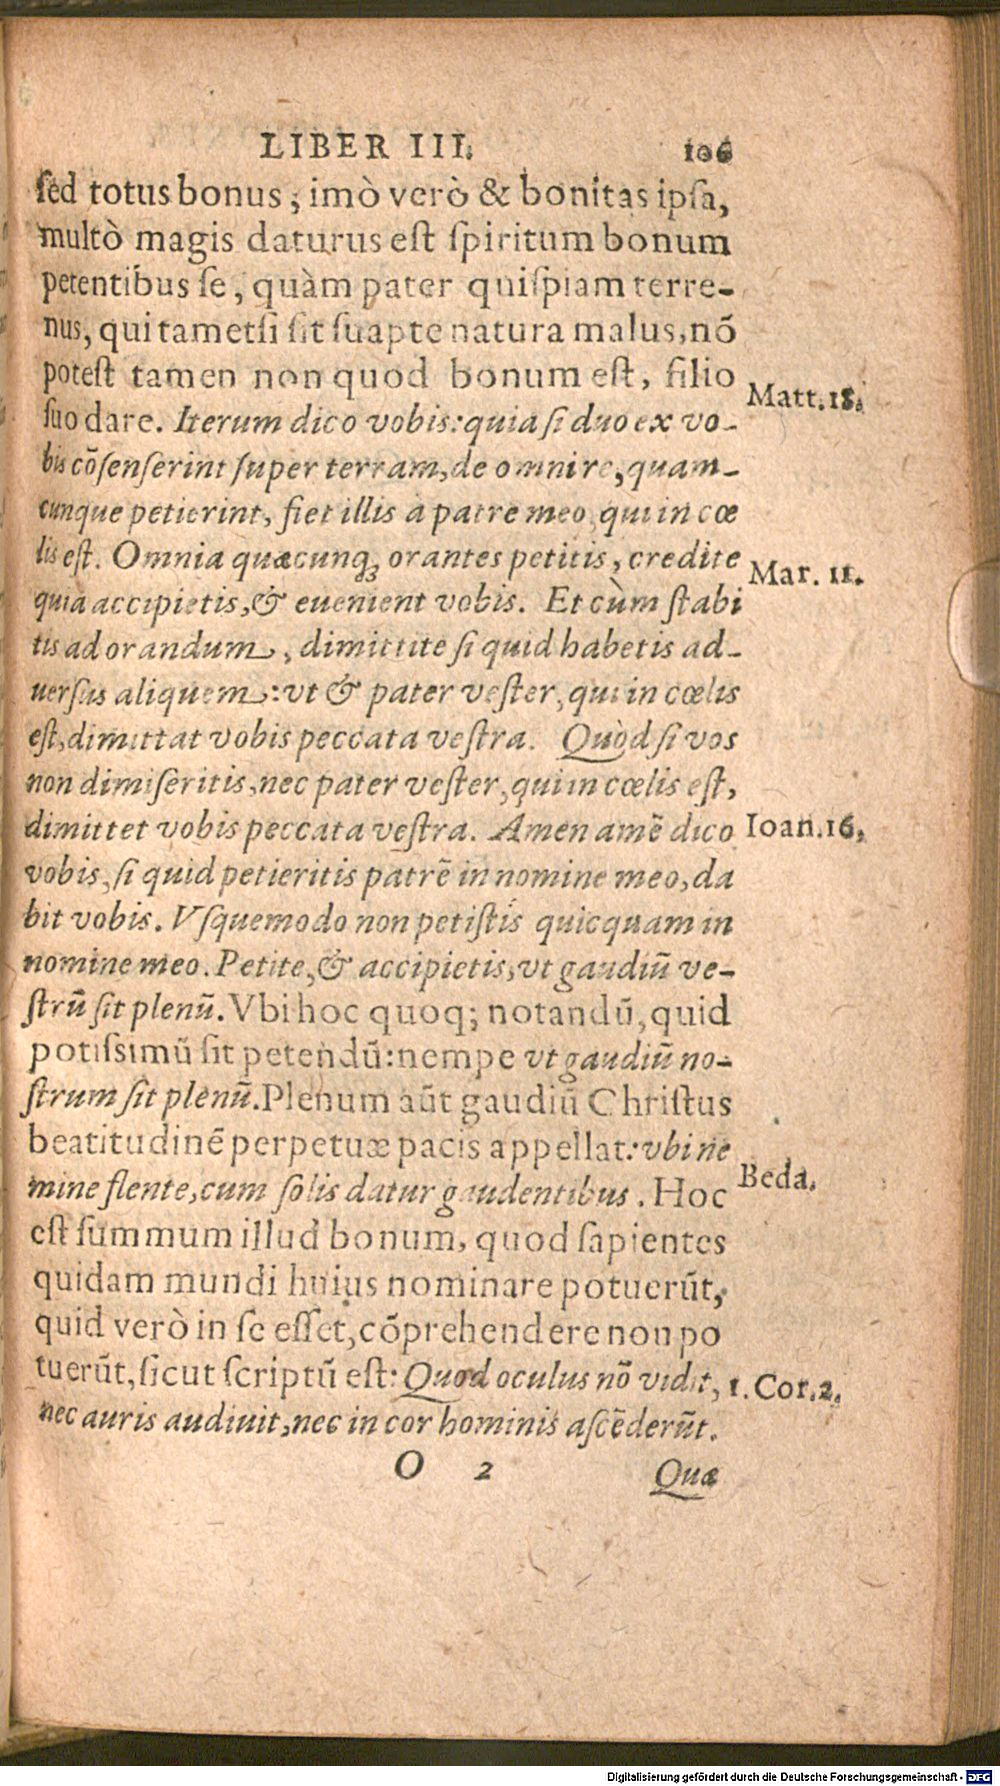 LIBER III. 106
sed totus bonus, imò verò & bonitas ipsa,
multò magis daturus est spiritum bonum
petentibus se, quàm pater quispiam terre-
nus, qui tametsi sit suapte natura malus, nō
potest tamen non quod bonum est, filio
Matt. 18.
suo dare. Iterum dico vobis: quia si duo ex vo-
bis cōsenserint super terram, de omni re, quam-
cunque petierint, fiet illis à patre meo, qui in cœ
lis est. Omnia quæcunq; orantes petitis, credite
Mar. 11.
quia accipietis, & euenient vobis. Et cùm stabi
tis ad orandum, dimittite si quid habetis ad-
uersus aliquem: vt & pater vester, qui in cœlis
est, dimittat vobis peccata vestra. Quòd si vos
non dimiseritis, nec pater vester, qui in cœlis est,
dimittet vobis peccata vestra. Amen amē dico
Ioan. 16.
vobis, si quid petieritis patrē in nomine meo, da
bit vobis. Vsquemodo non petistis quicquam in
nomine meo. Petite, & accipietis, vt gaudiū ve-
strū sit plenū. Vbi hoc quoq; notandū, quid
potissimū sit petendū: nempe vt gaudiū no-
strum sit plenū. Plenum aūt gaudiū Christus
beatitudinē perpetuæ pacis appellat: vbi ne
Beda.
mine flente, cum solis datur gaudentibus. Hoc
est summum illud bonum, quod sapientes
quidam mundi huius nominare potuerūt,
quid verò in se esset, cōprehendere non po
tuerūt, sicut scriptū est: Quod oculus nō vidit,
1. Cor. 2.
nec auris audiuit, nec in cor hominis ascēderūt.
O 2 Quæ
Digitalisierung gefördert durch die Deutsche Forschungsgemeinschaft - DFG